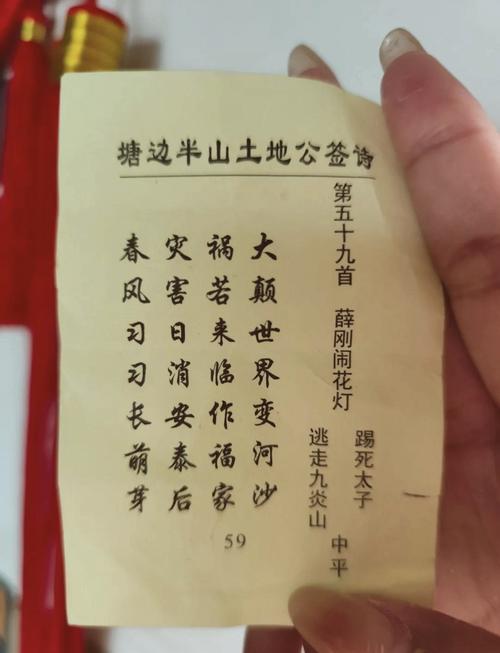 塘边半山土地公签诗
第五十九首 薛刚闹花灯
踢死太子
逃走九炎山
中平
大颠世界变河沙
祸若来临作福家
灾害日消安泰后
春风习习长萌芽
59